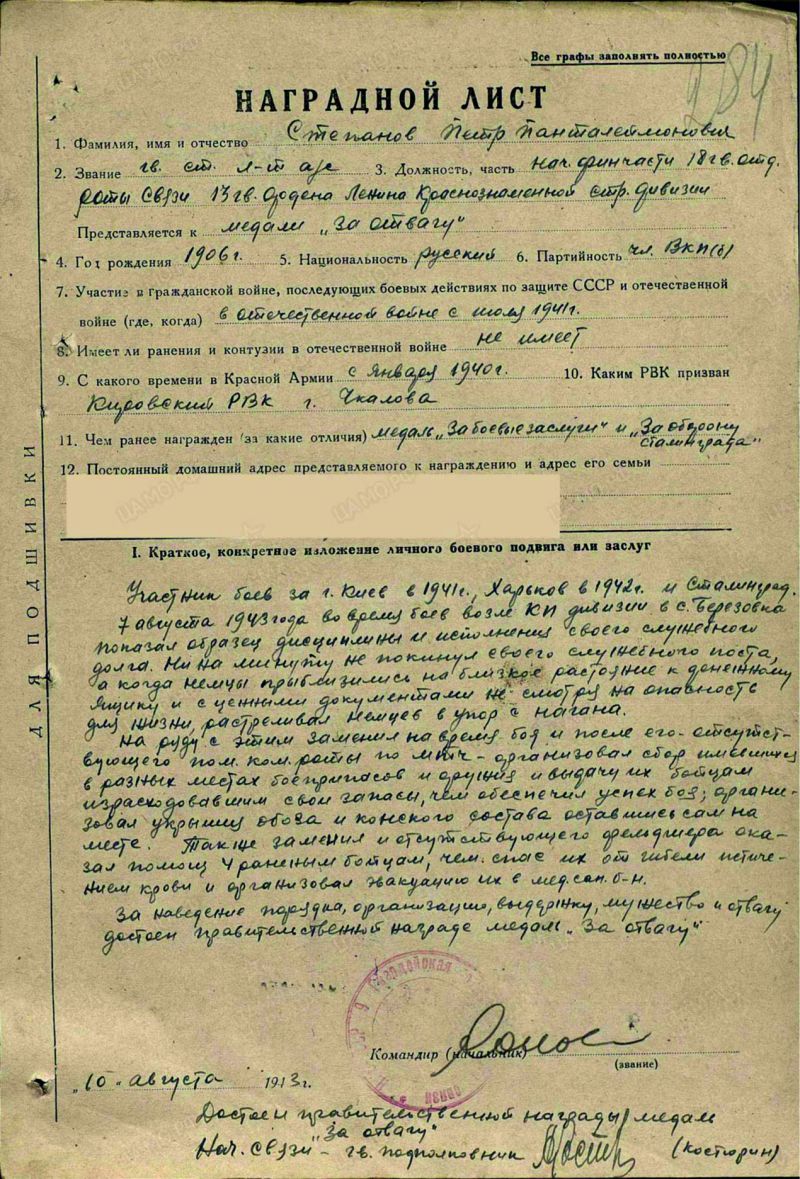 Все графы заполнять полностью
284
НАГРАДНОЙ ЛИСТ
1. Фамилия, имя и отчество Степанов Петр Панталеймонович
2. Звание гв. ст. л-т а/с 3. Должность, часть нач. финчасти 18 гв. отд.
роты связи 13 гв. ордена Ленина Краснознаменной стр. дивизии
Представляется к медали „За отвагу"
4. Год рождения 1906 г. 5. Национальность русский 6. Партийность чл. ВКП(б)
7. Участие в гражданской войне, последующих боевых действиях по защите СССР и отечественной
войне (где, когда) в отечественной войне с июля 1941 г.
8. Имеет ли ранения и контузии в отечественной войне не имеет
9. С какого времени в Красной Армии с января 1940 г. 10. Каким РВК призван
Кировский РВК г. Чкалова
11. Чем ранее награжден (за какие отличия) медаль „За боевые заслуги" и „За оборону
Сталинграда"
12. Постоянный домашний адрес представляемого к награждению и адрес его семьи
ДЛЯ ПОДШИВКИ
I. Краткое, конкретное изложение личного боевого подвига или заслуг
Участник боев за г. Киев в 1941 г., Харьков в 1942 г. и Сталинград.
7 августа 1943 года во время боев возле КП дивизии в с. Березовка
показал образец дисциплины и исполнения своего служебного
долга. Ни на минуту не покинул своего служебного поста,
а когда немцы прыблизились на близкое растояние к денежному
ящику и с ценными документами не смотря на опасность
для жизни, растреливал немцев в упор с нагана.
На ряду с этим заменил на время боя и после его отсутст-
вующего пом. ком. роты по МТЧ - организовал сбор имевшихся
в разных местах боеприпасов и оружия и выдачу их бойцам
израсходовавшим свои запасы, чем обеспечил успех боя; органи-
зовал укрытие обоза и конского состава оставшись сам на
месте. Так же заменил и отсутствующего фельдшера ока-
зал помощ 4 раненым бойцам, чем спас их от гибели истече-
нием крови и организовал эвакуацию их в мед. сан. б-н.
За наведение порядка, организацию, выдержку, мужество и отвагу
достоен правительственной награде медаль „За отвагу"
Командир (начальник)
(звание)
„10" августа 1943 г.
Достоен правительственной награды медаль
„За отвагу"
Нач. связи - гв. подполковник (Костюрин)